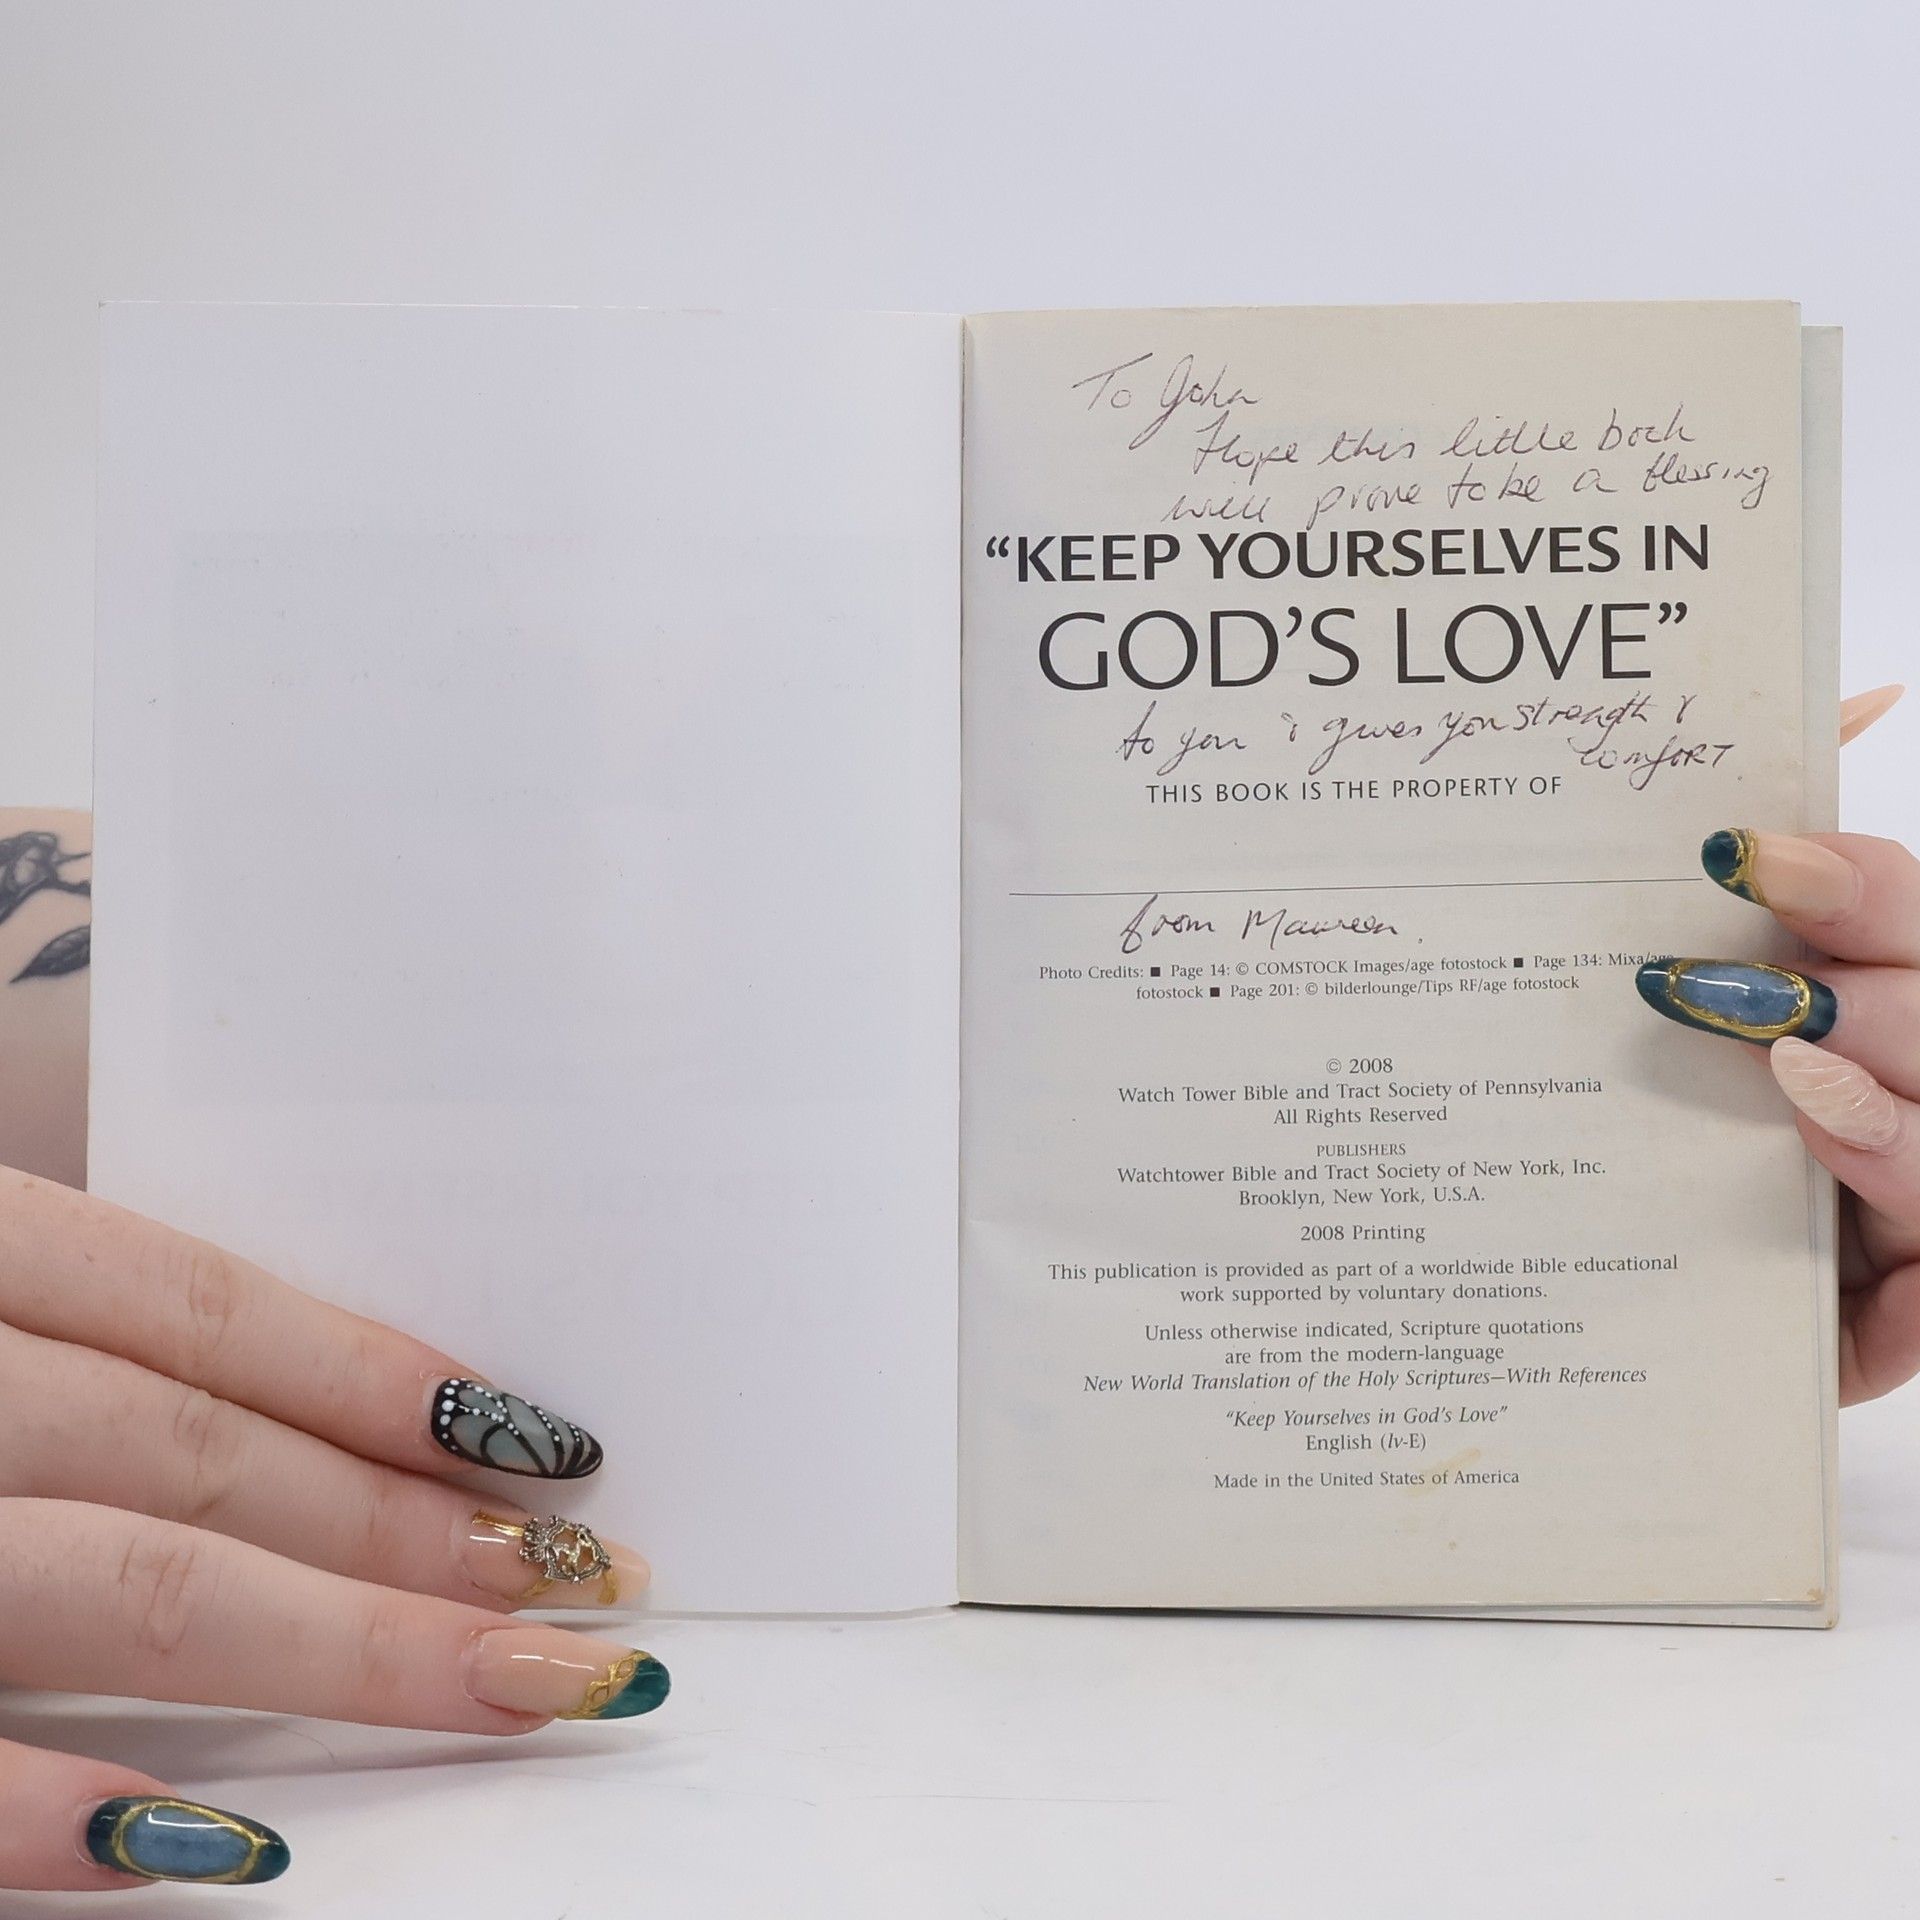 To John
Hope this little book
will prove to be a blessing
“KEEP YOURSELVES IN
GOD’S LOVE”
to you & gives you strength &
comfort
THIS BOOK IS THE PROPERTY OF
from Maureen.
Photo Credits: ■ Page 14: © COMSTOCK Images/age fotostock ■ Page 134: Mixa/age
fotostock ■ Page 201: © bilderlounge/Tips RF/age fotostock
© 2008
Watch Tower Bible and Tract Society of Pennsylvania
All Rights Reserved
PUBLISHERS
Watchtower Bible and Tract Society of New York, Inc.
Brooklyn, New York, U.S.A.
2008 Printing
This publication is provided as part of a worldwide Bible educational
work supported by voluntary donations.
Unless otherwise indicated, Scripture quotations
are from the modern-language
New World Translation of the Holy Scriptures—With References
“Keep Yourselves in God’s Love”
English (lv-E)
Made in the United States of America